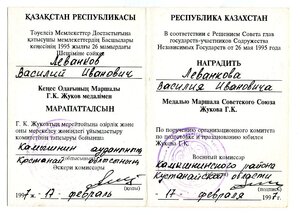 ҚАЗАҚСТАН РЕСПУБЛИКАСЫ
Тәуелсіз Мемлекеттердің Достастығына
қатысушы мемлекеттердің Басшылары
кеңесінің 1995 жылғы 26 мамырдағы
Шешіміне сәйкес
Леванков
Василий Иванович
Кеңес Одағының Маршалы
Г.К. Жуков медалімен
МАРАПАТТАЛСЫН
Г. К. Жуковтың мерейтойына әзірлік және
оны мерекелеу жөніндегі ұйымдастыру
комитетінің тапсыруы бойынша
Әскери комиссары
1997ж. 17 февраль
РЕСПУБЛИКА КАЗАХСТАН
В соответствии с Решением Совета глав
государств-участников Содружества
Независимых Государств от 26 мая 1995 года
НАГРАДИТЬ
Леванкова
Василия Ивановича
Медалью Маршала Советского Союза
Жукова Г.К.
По поручению организационного комитета
по подготовке и празднованию юбилея
Жукова Г.К.
Военный комиссар
Калининского района
Кустанайской области
1997г. 17 февраля